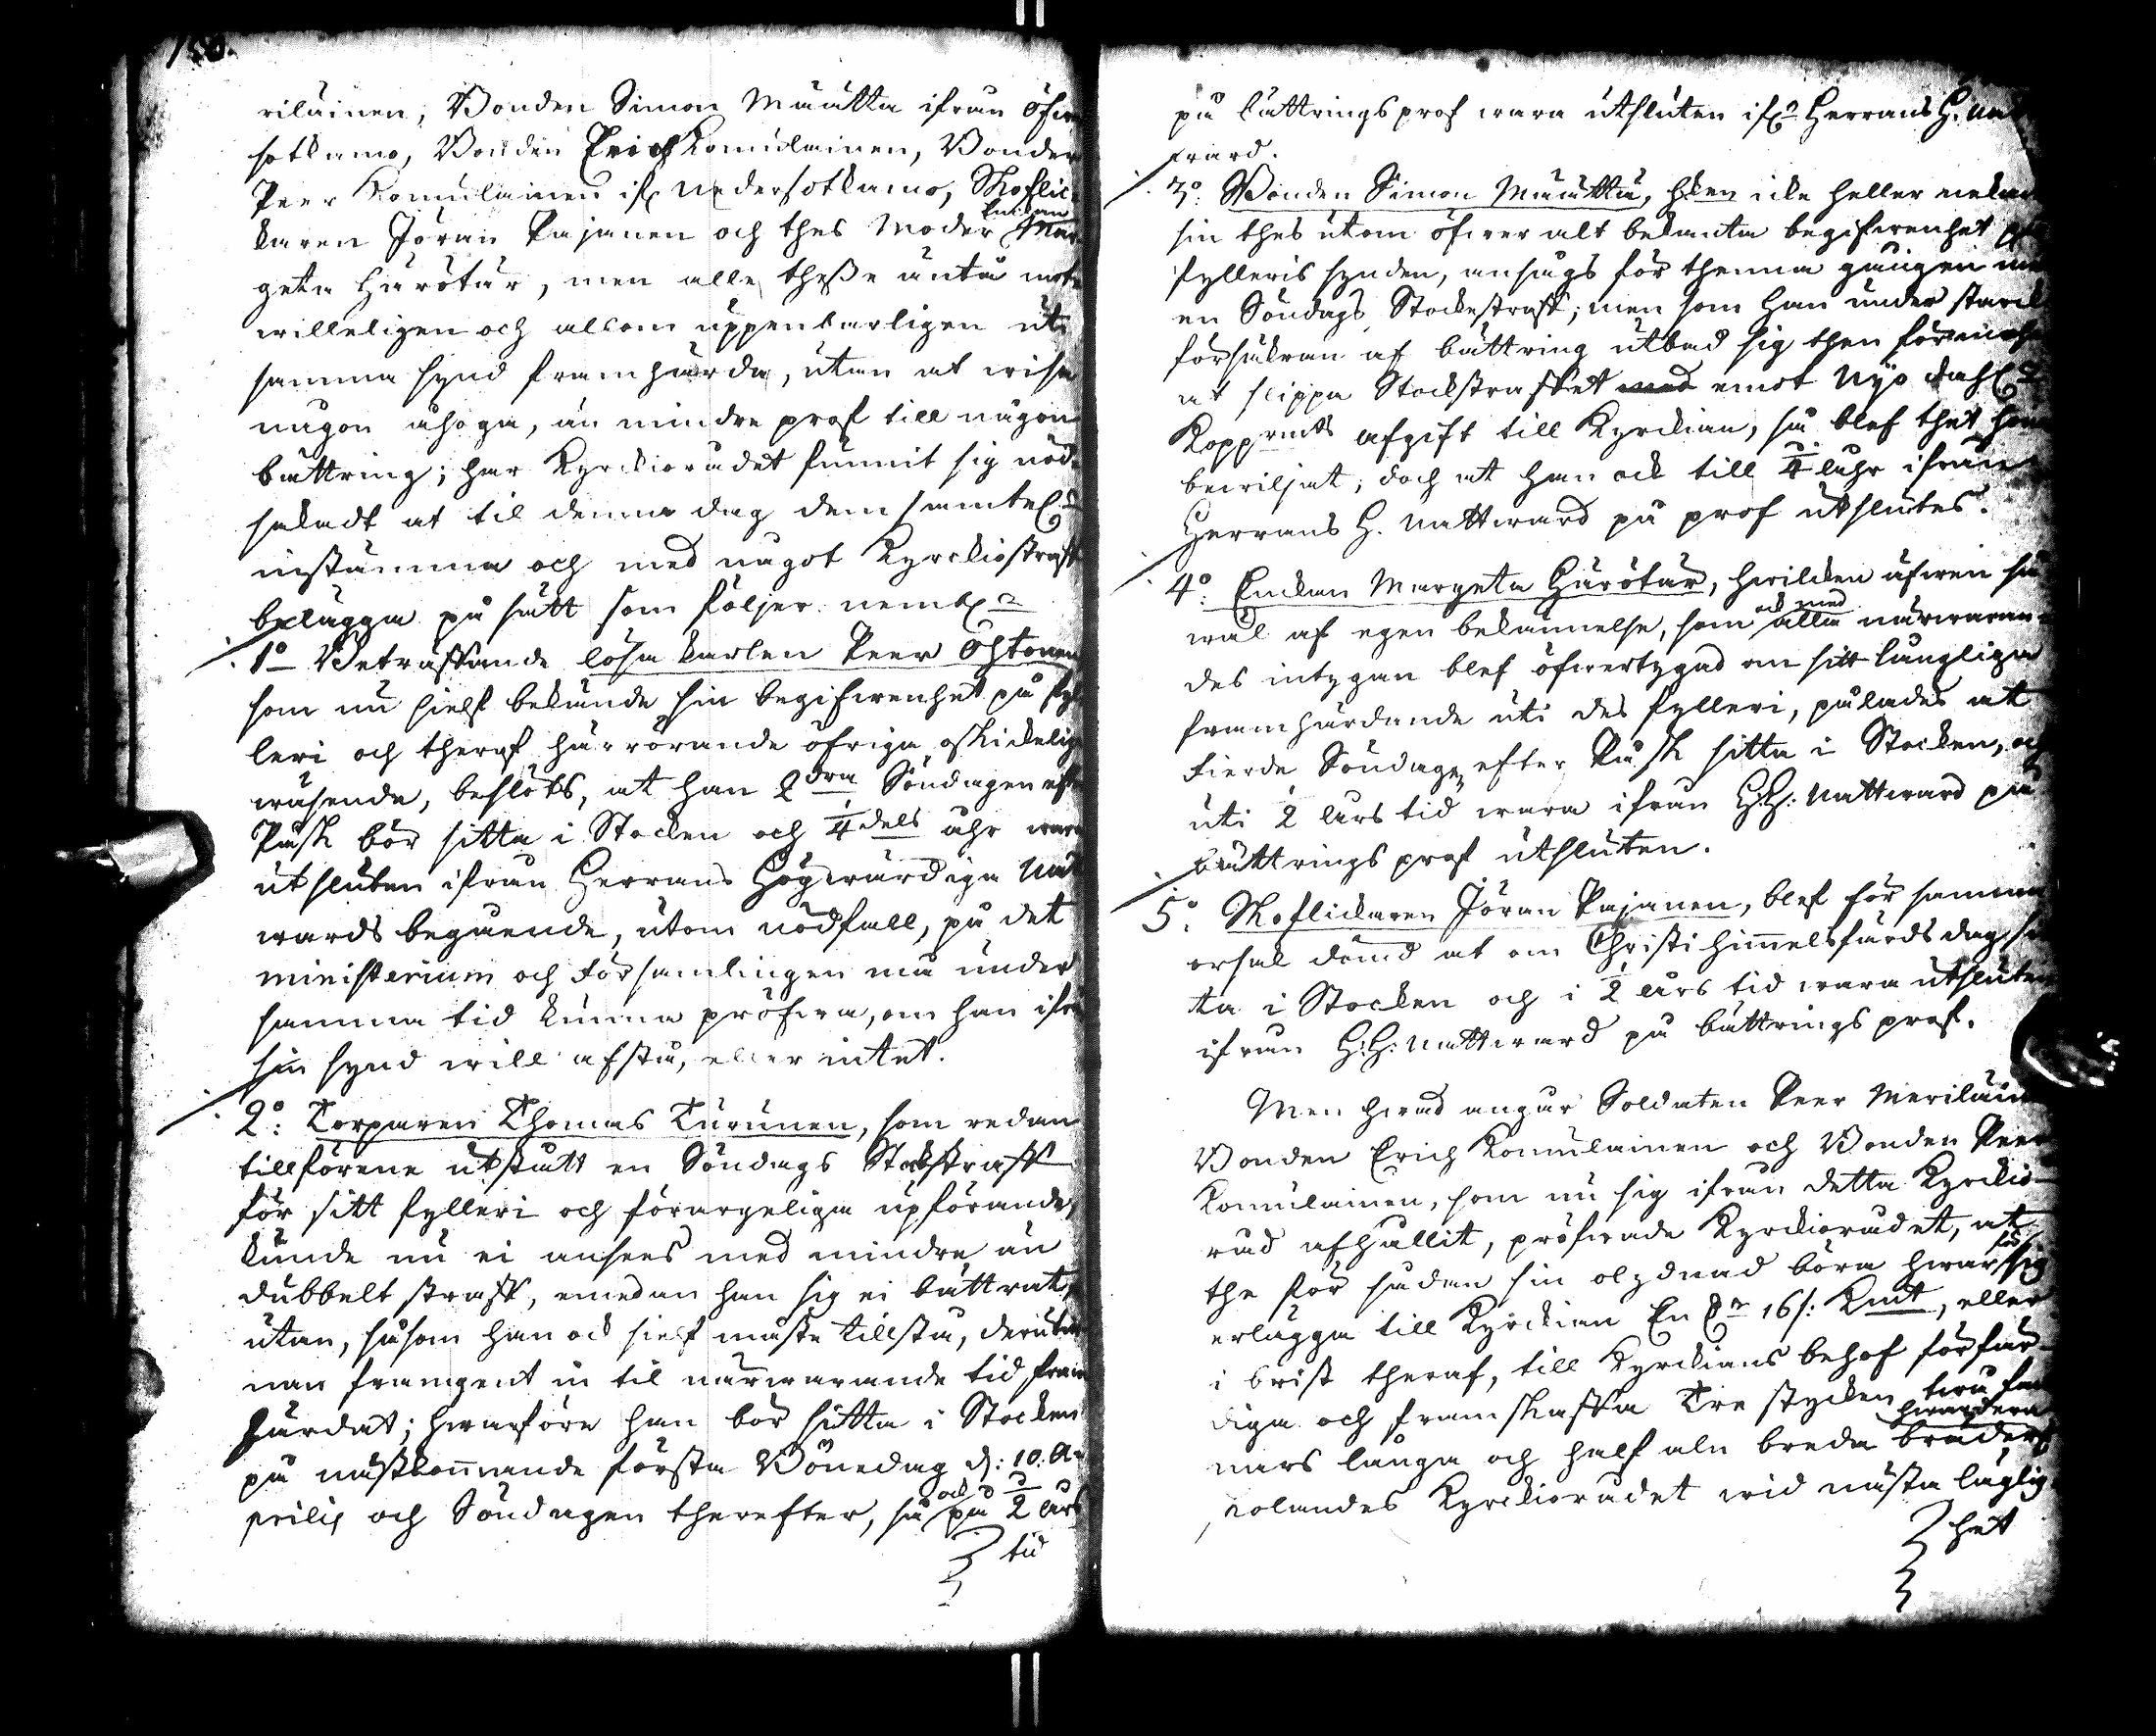 riläinen, Bonden Simon Määttä ifrån Öfwer
sotkamo, Bonden Erich Komulainen, Bonden
Peer Komulainen ifr Nedersotkamo, Skoflic-
karen Jöran Pajanen och thes Moder Enckan Mar-
geta Hurötär, men alle thesse äntå mot-
willeligen och allom uppenbarligen uti
samma synd framhärda, utan at wisa
någon åhoga, än mindre prof till någon
bättring; har Kyrckiorådet funnit sig nöd-
sakadt at til denna dag dem samtel.
instämma och med något Kyrckiostraff
belägga på sätt som följer neml.
1o Beträffande lösa karlen Peer Ohtonen
som nu sielf bekände sin begifwenhet på fyl-
leri och theraf härrörande öfriga oskickelige
wäsende, beslöts, at han 2dra Söndagen efter
Påsk bör sitta i Stocken och 1/4dels åhr wara
utsluten ifrån Herrans Högwärdiga Natt-
wards begående, utom nödfall, på det
ministerium och Församlingen må under
samma tid kunna pröfwa, om han ifrån
sin synd will afstå, eller intet.
2o: Torparen Thomas Turunen, som redan
tillförene utstått en Söndags Stockstraff
för sitt fylleri och förargeliga upförande,
kunde nu ei ansees med mindre än
dubbelt straff, emedan han sig ei bättrat,
utan, såsom han ock sielf måste tillstå, derutin-
nan framgent in til närwarande tid fram-
härdat; hwarföre han bör sitta i Stocken
på nästkommande första Bönedag d: 10. A-
prilis och Söndagen therefter, så ock på 1/2 års
tid
på bättringsprof wara utsluten ifrn Herrans H. Natt-
ward.
3o: Bonden Simon Määttä, hken icke heller nekade
sin thes utom öfwer alt bekanta begifwenhet på
fylleris synden, ansågs för thenna gången med
en Söndags Stockestraff; men som han under starck
försäkran af bättring utbad sig then förmohn
at slippa Stockstraffet emot Nyo dahl.
Kopprmts afgift till Kyrckian, så blef thet honom
bewiljat, doch at han ock till 1/4 Åhr ifrån
Herrans H. Nattward på prof utslutes.
4o: Enckan Margeta Hurötär, hwilcken äfwen så
wäl af egen bekännelse, som ock med alla närwaran-
des intygan blef öfwertygad om sitt långliga
framhärdande uti des fylleri, pålades at
Fierde Söndagen efter Påsk sitta i Stocken, och
uti 1/2 Års tid wara ifrån H:H: Nattward på
bättrings prof utsluten.
5o: Skoflickaren Jöran Pajanen, blef för samma
orsak dömd at om Christi himmelsfärds dag sit-
ta i Stocken och i 1/2 års tid wara utsluten
ifrån H:H: Nattward på bättrings prof.
Men hwad angår Soldaten Peer Meriläin
Bonden Erich Komulainen och Bonden Peer
Komulainen, som nu sig ifrån detta Kyrckio-
råd afhållit, pröfwade Kyrckiorådet, at
the för sådan sin olydnad böra hwar för sig
erlägga till Kyrckian En Dr 16 s: Kmt, eller
i brist theraf, till Kyrckians behof förfär-
diga och framskaffa Tre stycken twå fam-
nars långa och half aln breda hwardera bräder
Kyrckiorådet wid nästa läglig-
het